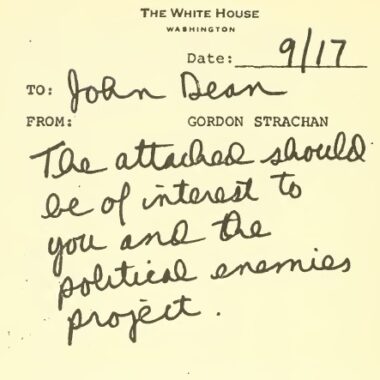 THE WHITE HOUSE
WASHINGTON
Date: 9/17
TO: John Dean
FROM: GORDON STRACHAN
The attached should
be of interest to
you and the
political enemies
project.